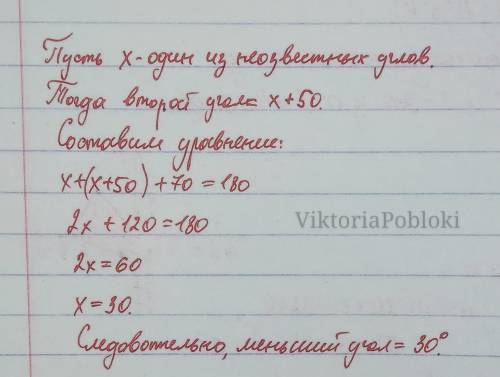 Пусть x - один из неозвестных углов.
Тогда второй угол = x+50.
Составим уравнение:
x+(x+50)+70=180
2x+120=180
ViktoriaPobloki
2x=60
x=30.
Следовательно, меньший угол = 30°.